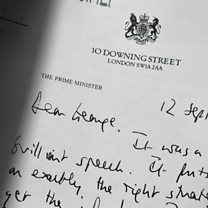 10 DOWNING STREET
LONDON SW1A 2AA
THE PRIME MINISTER
12 Sept
Dear George,
It was a
brilliant speech. It puts
on exactly, the right strate
get the